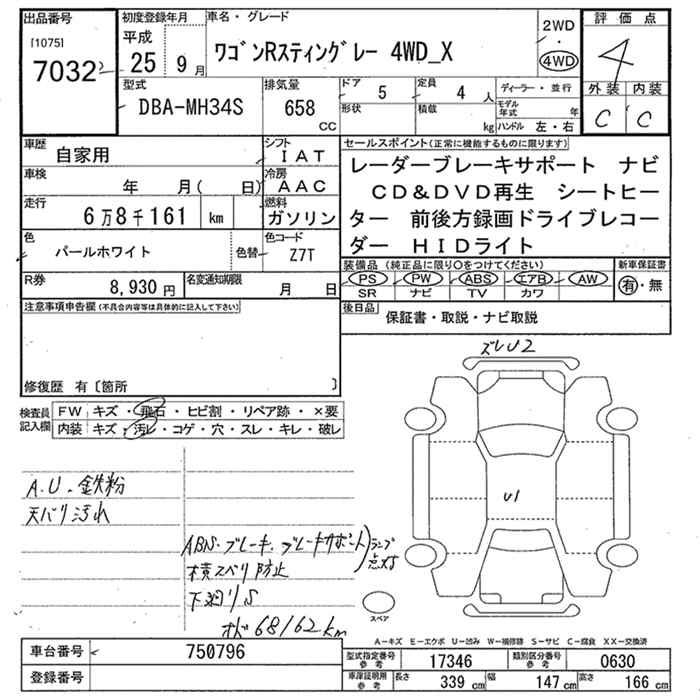 出品番号
[1075]
7032
初度登録年月
平成
25 9月
車名・グレード
ワゴンRスティングレー 4WD_X
2WD
・
4WD
評価点
4
外装 内装
C C
型式
DBA-MH34S
排気量
658
CC
ドア
5
形状
定員
4 人
積載
kg
ディーラー・並行
モデル年式 年
ハンドル 左・右
車歴
自家用
シフト
IAT
車検
年 月( 日)
冷房
AAC
走行
6万8千161 km
燃料
ガソリン
色
パールホワイト
色替
色コード
Z7T
R券
8,930 円
名変通知期限
月 日
セールスポイント(正常に機能するものに限ります)
レーダーブレーキサポート ナビ
CD&DVD再生 シートヒー
ター 前後方録画ドライブレコー
ダー HIDライト
装備品 (純正品に限り○をつけてください)
PS PW ABS エアB AW
SR ナビ TV カワ
新車保証書
有・無
後日品
保証書・取説・ナビ取説
注意事項申告欄(不具合内容等は具体的に記入して下さい)
修復歴 有〔箇所 〕
検査員記入欄
FW キズ・飛石・ヒビ割・リペア跡・×要
内装 キズ・汚レ・コゲ・穴・スレ・キレ・破レ
A.U.鉄粉
天バリ汚れ
ABS.ブレーキ.ブレーキサポート)ランプ点灯
横スベリ防止
下廻りS
オド68162km
ズレU2
U1
スペア
A-キズ E-エクボ U-凹み W-補修跡 S-サビ C-腐食 XX-交換済
車台番号
750796
登録番号
型式指定番号
参考
17346
類別区分番号
参考
0630
車庫証明用
参考
長さ 339 cm
幅 147 cm
高さ 166 cm